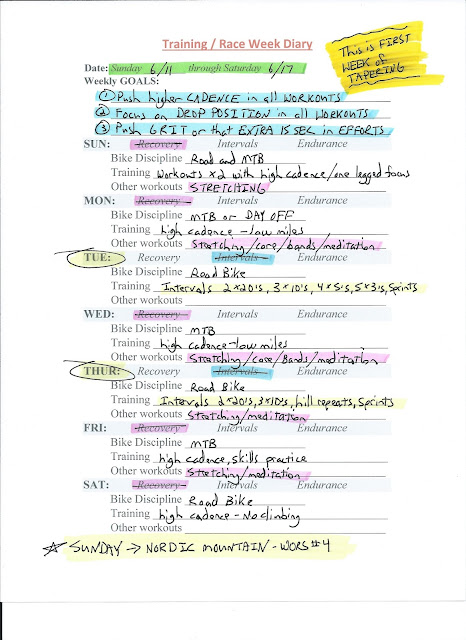 Training / Race Week Diary
This is FIRST
WEEK of
TAPERING
Date: Sunday 6/11 through Saturday 6/17
Weekly GOALS:
① Push higher CADENCE in all WORKOUTS
② Focus on DROP POSITION in all WORKOUTS
③ Push GRIT or that EXTRA 15 SEC in EFFORTS
SUN: Recovery Intervals Endurance
Bike Discipline Road and MTB
Training Workouts x2 with high cadence/one legged focus
Other workouts STRETCHING
MON: Recovery Intervals Endurance
Bike Discipline MTB or DAY OFF
Training high cadence - low miles
Other workouts Stretching/core/bands/meditation
TUE: Recovery Intervals Endurance
Bike Discipline Road Bike
Training Intervals 2x20's, 3x10's, 4x5's, 5x3's, Sprints
Other workouts
WED: Recovery Intervals Endurance
Bike Discipline MTB
Training high cadence - low miles
Other workouts Stretching/core/Bands/meditation
THUR: Recovery Intervals Endurance
Bike Discipline Road Bike
Training Intervals 2x20's, 3x10's, hill repeats, Sprints
Other workouts Stretching/meditation
FRI: Recovery Intervals Endurance
Bike Discipline MTB
Training high cadence, skills practice
Other workouts Stretching/meditation
SAT: Recovery Intervals Endurance
Bike Discipline Road Bike
Training high cadence - No climbing
Other workouts
☆ SUNDAY → NORDIC MOUNTAIN - WORS #4